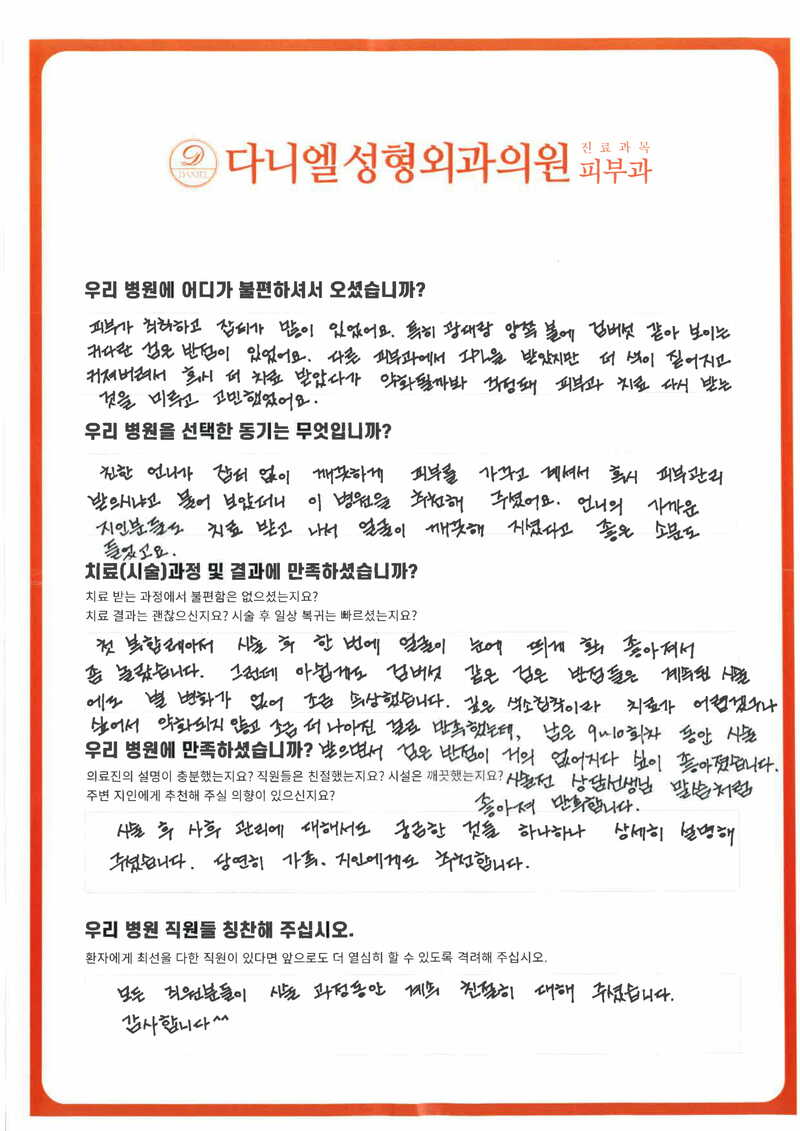 DANIEL
다니엘성형외과의원
진료과목
피부과
우리 병원에 어디가 불편하셔서 오셨습니까?
피부가 칙칙하고 잡티가 많이 있었어요. 특히 광대랑 양쪽 볼에 검버섯 같아 보이는
커다란 검은 반점이 있었어요. 다른 피부과에서 관리를 받았지만 더 색이 짙어지고
커져버려서 혹시 더 치료 받았다가 악화될까봐 걱정돼 피부과 치료 다시 받는
것을 미루고 고민했었어요.
우리 병원을 선택한 동기는 무엇입니까?
친한 언니가 잡티 없이 깨끗하게 피부를 가꾸고 계셔서 혹시 피부관리
받으시냐고 물어 보았더니 이 병원을 추천해 주셨어요. 언니의 가까운
지인분들도 치료 받고 나서 얼굴이 깨끗해 지셨다고 좋은 소문도
들었고요.
치료(시술)과정 및 결과에 만족하셨습니까?
치료 받는 과정에서 불편함은 없으셨는지요?
치료 결과는 괜찮으신지요? 시술 후 일상 복귀는 빠르셨는지요?
첫 복합레이저 시술 후 한 번에 얼굴이 눈에 띄게 확 좋아져서
좀 놀랐습니다. 그런데 아쉽게도 검버섯 같은 검은 반점들은 계속된 시술
에도 별 변화가 없어 조금 속상했습니다. 깊은 색소침착이라 치료가 어렵겠구나
싶어서 악화되지 않고 조금 더 나아진 걸로 만족했는데, 남은 9~10회차 동안 시술
받으면서 검은 반점이 거의 없어지다 싶이 좋아졌습니다.
시술전 상담선생님 말씀처럼
좋아져 만족합니다.
우리 병원에 만족하셨습니까?
의료진의 설명이 충분했는지요? 직원들은 친절했는지요? 시설은 깨끗했는지요?
주변 지인에게 추천해 주실 의향이 있으신지요?
시술 후 사후 관리에 대해서도 궁금한 것들 하나하나 상세히 설명해
주셨습니다. 당연히 가족, 지인에게도 추천합니다.
우리 병원 직원들 칭찬해 주십시오.
환자에게 최선을 다한 직원이 있다면 앞으로도 더 열심히 할 수 있도록 격려해 주십시오.
모든 직원분들이 시술 과정동안 계속 친절히 대해 주셨습니다.
감사합니다^^